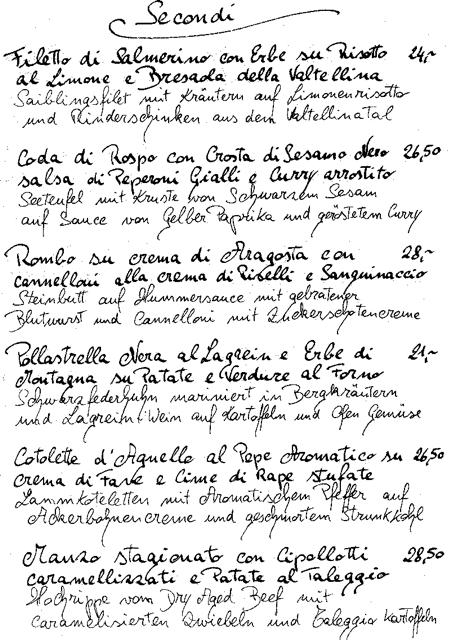 Secondi
Filetto di Salmerino con Erbe su Risotto 24,-
al Limone e Bresaola della Valtellina
Saiblingsfilet mit Kräutern auf Limonenrisotto
und Rinderschinken aus dem Valtellinatal
Coda di Rospo con Crosta di Sesamo Nero 26,50
salsa di Peperoni Gialli e Curry arrostito
Seeteufel mit Kruste von Schwarzem Sesam
auf Sauce von Gelber Paprika und geröstetem Curry
Rombo su crema di Aragosta con 28,-
cannelloni alla crema di Piselli e Sanguinaccio
Steinbutt auf Hummersauce mit gebratener
Blutwurst und Cannelloni mit Zuckerschotencreme
Pollastrella Nera al Lagrein e Erbe di 21,-
Montagna su Patate e Verdure al Forno
Schwarzfederhuhn mariniert in Bergkräutern
und Lagrein-Wein auf Kartoffeln und Ofen Gemüse
Cotolette d'Agnello al Pepe Aromatico su 26,50
crema di Fave e Cime di Rape stufate
Lammkoteletten mit Aromatischem Pfeffer auf
Ackerbohnencreme und geschmortem Strunkkohl
Manzo stagionato con Cipollotti 28,50
caramellizzati e Patate al Taleggio
Hochrippe vom Dry Aged Beef mit
caramelisierten Zwiebeln und Taleggio Kartoffeln